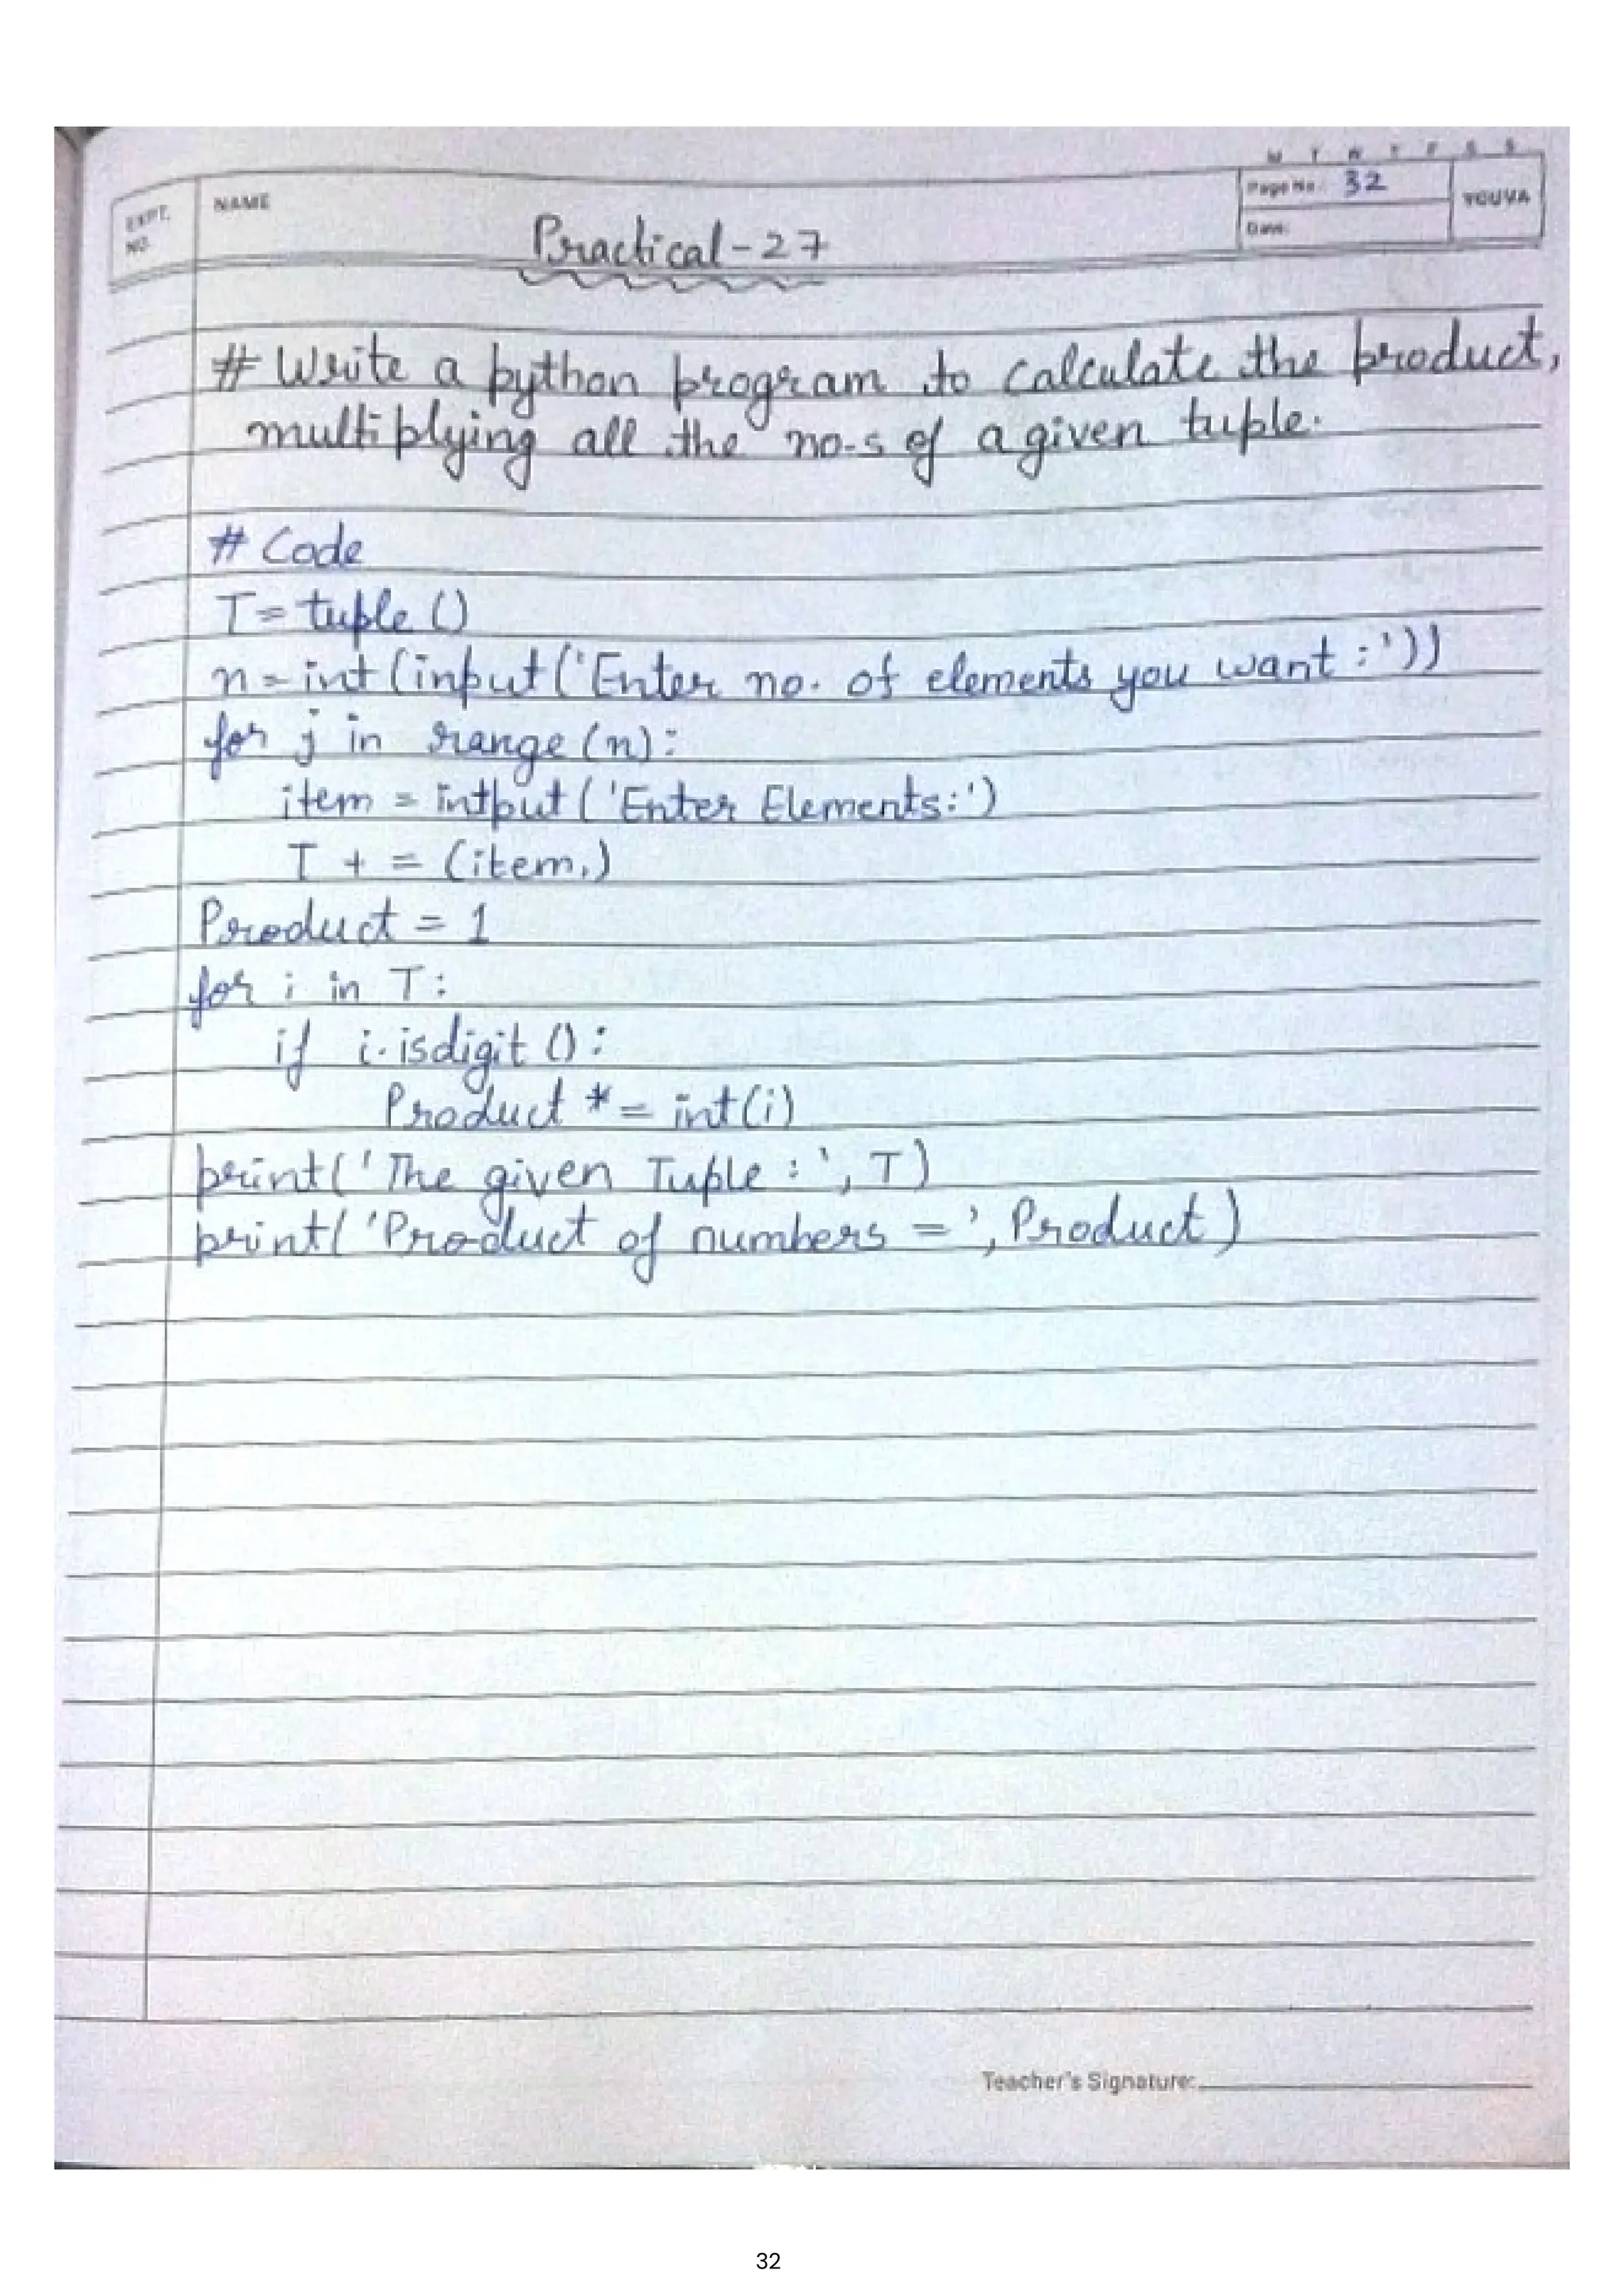 M T W T F S S
EXPT. NO.
NAME
Page No.: 32
YOUVA
Date:
Practical-27
# Write a python program to calculate the product,
multiplying all the no-s of a given tuple.
# Code
T = tuple ()
n = int (input ('Enter no. of elements you want :'))
for j in range (n):
    item = intput ('Enter Elements:')
    T + = (item,)
Product = 1
for i in T:
    if i.isdigit ():
        Product * = int(i)
print('The given Tuple : ', T)
print('Product of numbers = ', Product)
Teacher's Signature:
32